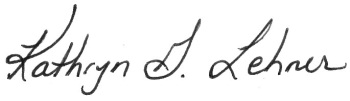 Kathryn G. Lehner